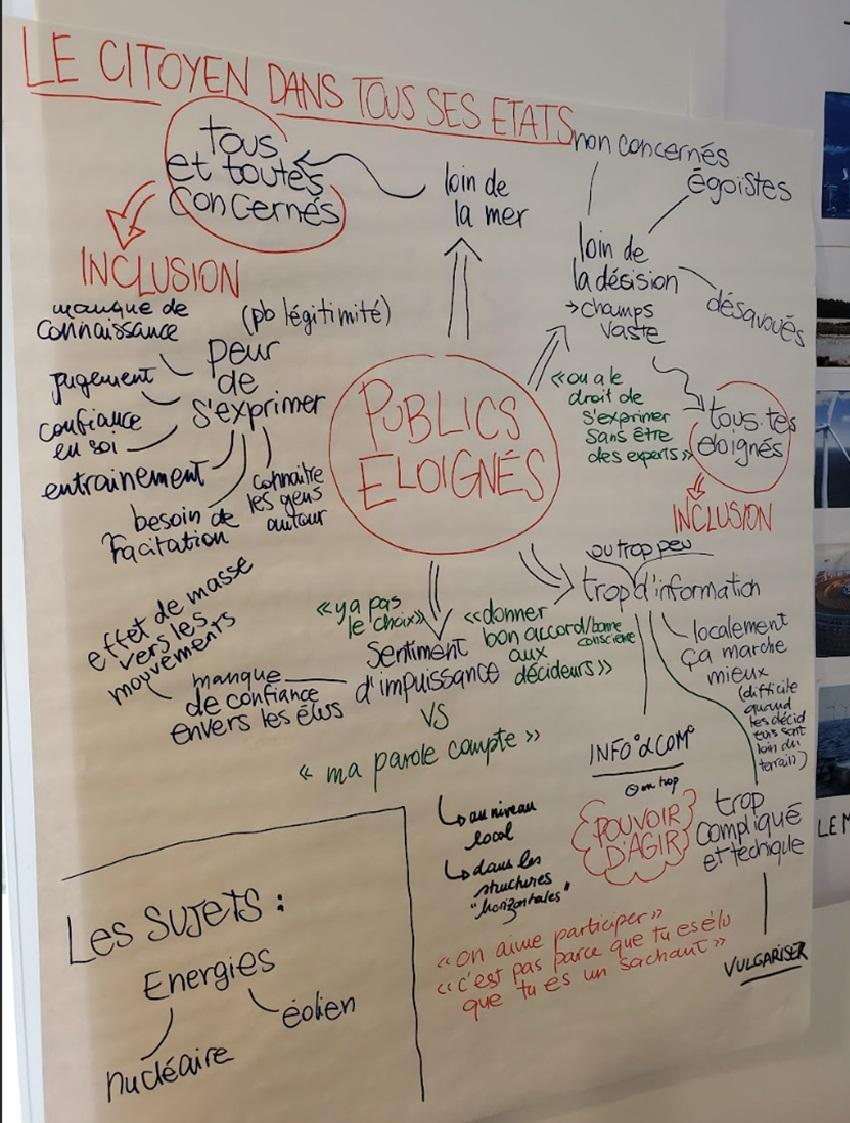 LE CITOYEN DANS TOUS SES ETATS
tous
et toutes
concernés
INCLUSION
loin de
la mer
non concernés
égoistes
loin de
la décision
→ champs
vaste
désavoués
manque de
connaissance
(pb légitimité)
peur
de
s'exprimer
jugement
confiance
en soi
entrainement
besoin de
facitation
connaitre
les gens
autour
PUBLICS
ELOIGNÉS
«on a le
droit de
s'exprimer
sans être
des experts»
tous·tes
eloignés
INCLUSION
effet de masse
vers les
mouvements
manque
de confiance
envers les élus
«y a pas
le choix»
Sentiment
d'impuissance
VS
« ma parole compte »
«donner
bon accord/bonne
conscience
aux
décideurs»
ou trop peu
trop d'information
localement
ça marche
mieux
(difficile
quand
les décid
eurs sont
loin du
terrain)
INFO° & COM°
POUVOIR
D'AGIR
trop
compliqué
et techique
VULGARISER
↳ au niveau
local
↳ dans les
structures
"horizontales"
«on aime participer»
«c'est pas parce que tu es élu
que tu es un sachant»
Les SUJETS :
Energies
éolien
nucléaire
LE M